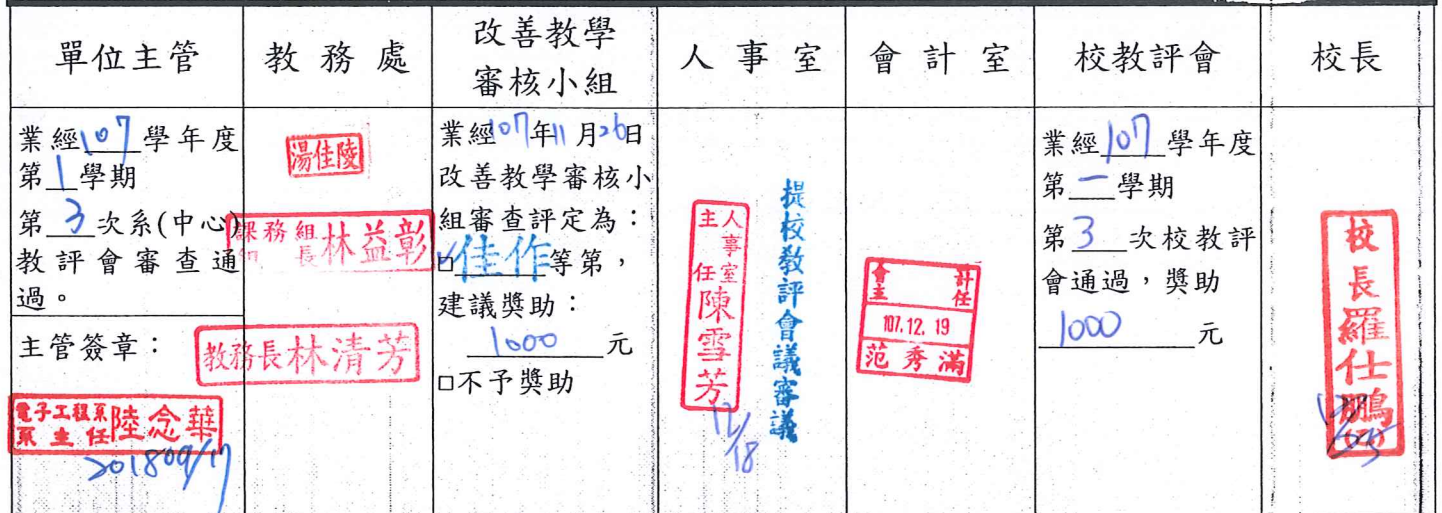 單位主管
教務處
改善教學
審核小組
人事室
會計室
校教評會
校長
業經107學年度
第1學期
第3次系(中心)
教評會審查通
過。
主管簽章：
電子工程系
系主任陸念華
20180917
湯佳陵
課務組
組長林益彰
教務長林清芳
業經107年11月26日
改善教學審核小
組審查評定為：
☑佳作等第，
建議獎助：
1000元
□不予獎助
人事室
主任陳雪芳
12/18
提校教評會議審議
會計
主任
107.12.19
范秀滿
業經107學年度
第一學期
第3次校教評
會通過，獎助
1000元
校長羅仕鵬